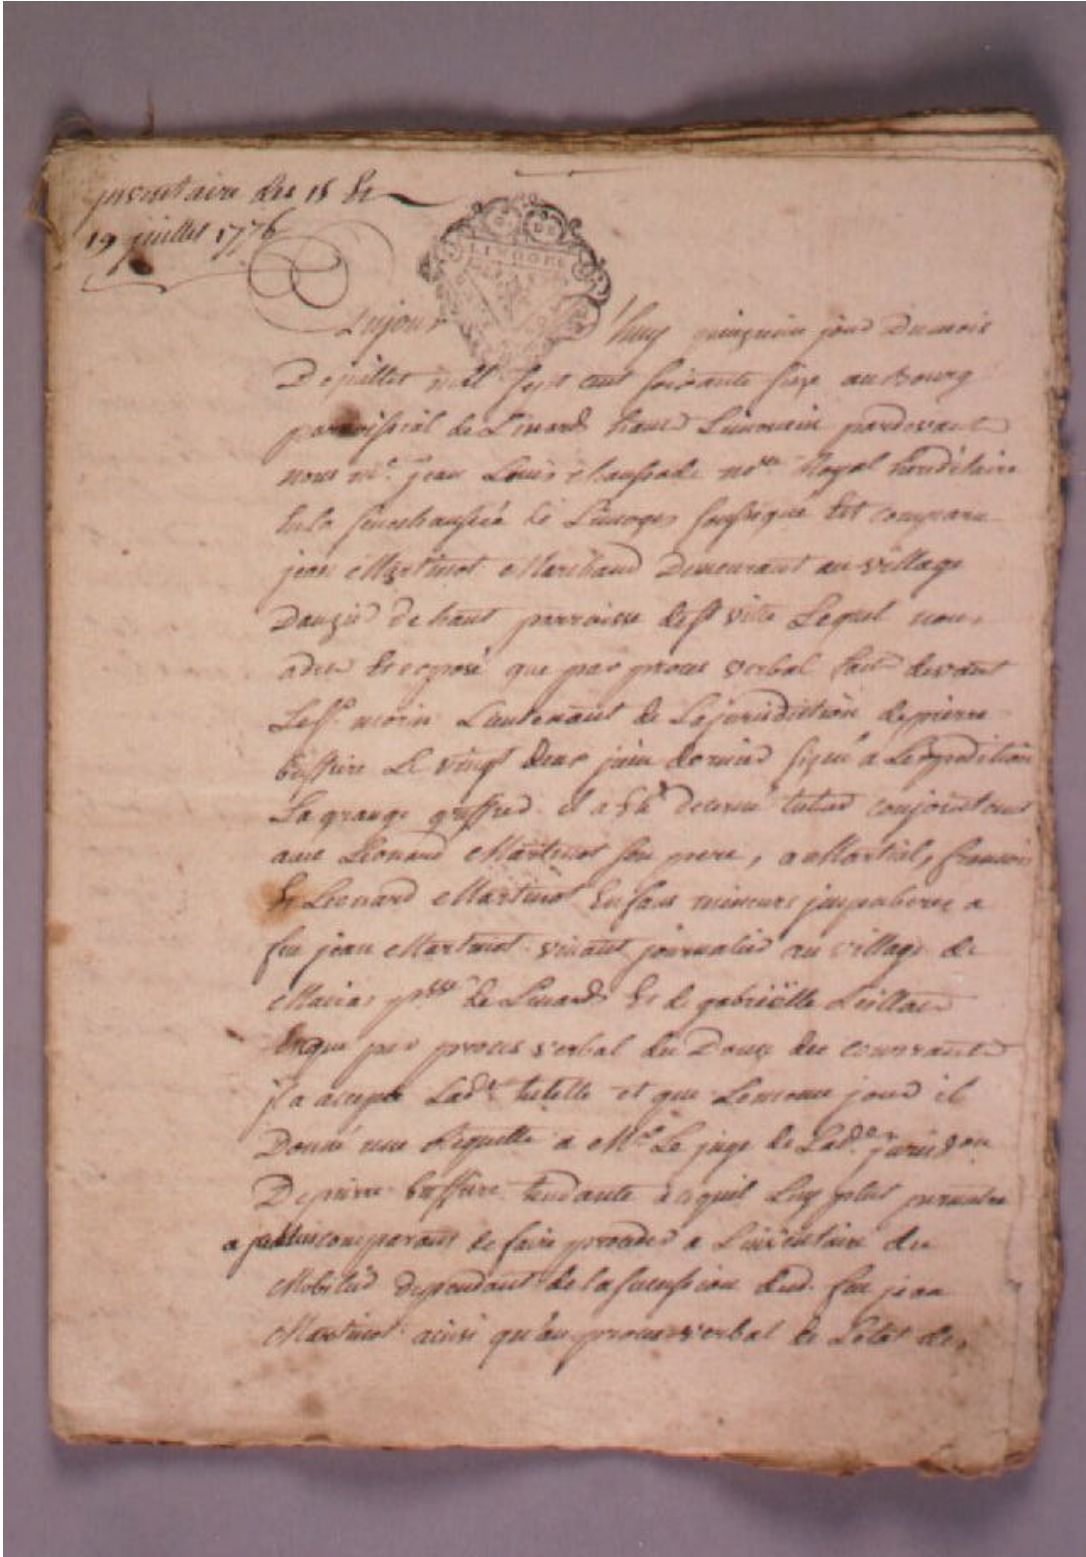 inventaire des 15 et
19 juillet 1776
LIMOGES
Aujour d'huy quinzieme jour du mois
De juillet mill sept cent soixante seize au Bourg
parroissial de Linards haut Limousin pardevant
nous me. jean Louis chaussade nore. Royal héréditaire
en la senechaussée de Limoges soussigné est comparu
jean Martinot Marchand Demeurant au village
de haut parroisse de st vitte Lequel nous
a dit et exposé que par proces verbal fait devant
Le sr. morin Lieutenant de La jurisdiction de pierre
buffiere Le vingt deux juin dernier signé a L'expedition
La grange greffier il a été decerné tuteur conjointement
avec Léonard Martinot son pere, a Martial, francois
et Leonard Martinot enfans mineurs impuberes a
feu jean Martinot vivant journalier au village de
psse de Linards et de gabriëlle
et que par proces verbal du Douze du courrant
il a accepté Ladte tutelle et que Le meme jour il
Donné une Requette a Mr Le juge de Ladte jurisdon
De pierre buffiere tendante a ce quil Luy plut permettre
comparant de faire proceder a Linventaire du
Mobilier dependant de la succession dud. feu jean
Martinot ainsi qu'au proces verbal de L'etat des